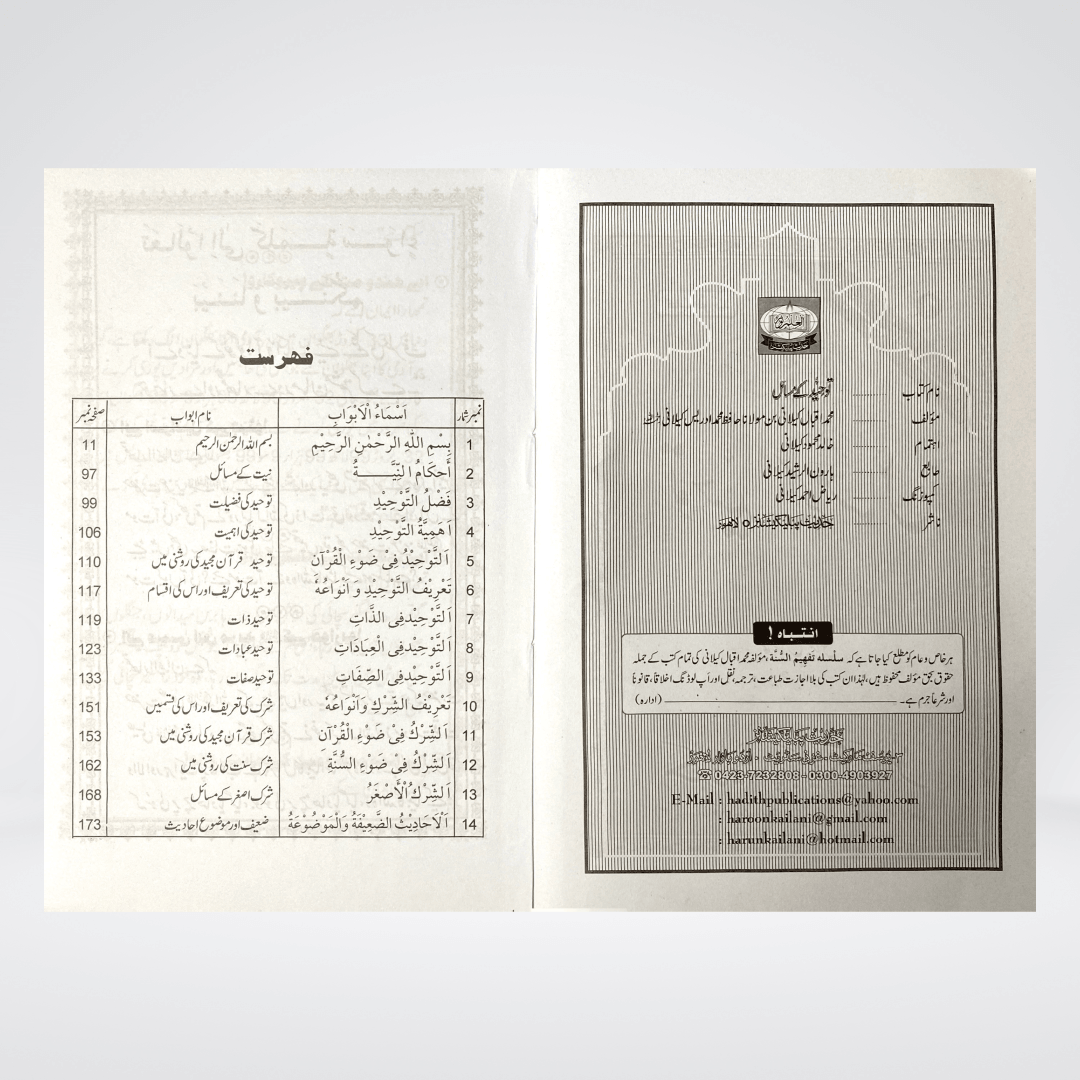 نام کتاب ........ توحید کے مسائل
مؤلف ........ محمد اقبال کیلانی بن مولانا حافظ محمد ادریس کیلانی رحمہ اللہ
اہتمام ........ خالد محمود کیلانی
طابع ........ ہارون الرشید کیلانی
کمپوزنگ ........ ریاض احمد کیلانی
ناشر ........ حدیث پبلیکیشنز ○ لاہور
انتباہ !
ہر خاص و عام کو مطلع کیا جاتا ہے کہ سلسلہ تفہیم السُّنَّة ، مؤلفہ محمد اقبال کیلانی کی تمام کتب کے جملہ
حقوق بحق مؤلف محفوظ ہیں، لہٰذا ان کتب کی بلا اجازت طباعت، ترجمہ، نقل اور اَپ لوڈنگ اخلاقاً، قانوناً
اور شرعاً جرم ہے۔ (ادارہ)
حدیث پبلیکیشنز
☎ 0423-7232808 - 0300-4903927
E-Mail : hadithpublications@yahoo.com
: haroonkailani@gmail.com
: harunkailani@hotmail.com
فہرست
نمبر شمار اَسْمَاءُ الْاَبْوَابِ نام ابواب صفحہ نمبر
1 بِسْمِ اللّٰهِ الرَّحْمٰنِ الرَّحِيْمِ بسم اللہ الرحمٰن الرحیم 11
2 أَحْكَامُ النِّيَّــــــةُ نیت کے مسائل 97
3 فَضْلُ التَّوْحِيْدِ توحید کی فضیلت 99
4 اَهَمِيَّةُ التَّوْحِيْدِ توحید کی اہمیت 106
5 اَلتَّوْحِيْدُ فِىْ ضَوْءِ الْقُرْآنِ توحید قرآن مجید کی روشنی میں 110
6 تَعْرِيْفُ التَّوْحِيْدِ وَ اَنْوَاعُهٗ توحید کی تعریف اور اس کی اقسام 117
7 اَلتَّوْحِيْدُ فِى الذَّاتِ توحید ذات 119
8 اَلتَّوْحِيْدُ فِى الْعِبَادَاتِ توحید عبادات 123
9 اَلتَّوْحِيْدُ فِى الصِّفَاتِ توحید صفات 133
10 تَعْرِيْفُ الشِّرْكِ وَاَنْوَاعُهٗ شرک کی تعریف اور اس کی قسمیں 151
11 اَلشِّرْكُ فِىْ ضَوْءِ الْقُرْآنِ شرک قرآن مجید کی روشنی میں 153
12 اَلشِّرْكُ فِىْ ضَوْءِ السُّنَّةِ شرک سنت کی روشنی میں 162
13 اَلشِّرْكُ الْاَصْغَرُ شرک اصغر کے مسائل 168
14 اَلْاَحَادِيْثُ الضَّعِيْفَةُ وَالْمَوْضُوْعَةُ ضعیف اور موضوع احادیث 173